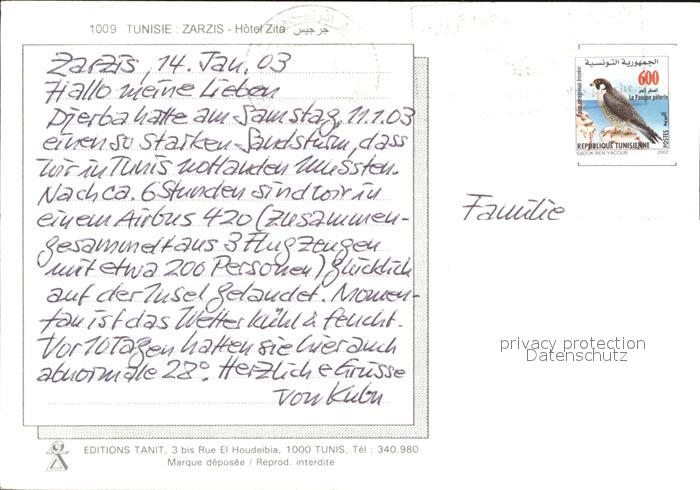 1009 TUNISIE : ZARZIS - Hôtel Zita جرجيس
Zarzis, 14. Jan. 03
Hallo meine Lieben
Djerba hatte am Samstag, 11.1.03
einen so starken Sandsturm, dass
wir in Tunis notlanden mussten.
Nach ca. 6 Stunden sind wir in
einem Airbus 420 (zusammen-
gesammelt aus 3 Flugzeugen
mit etwa 200 Personen) glücklich
auf der Insel gelandet. Momen-
tan ist das Wetter kühl & feucht.
Vor 10 Tagen hatten sie hier auch
abnormale 28°. Herzliche Grüsse
von
الجمهورية التونسية
600
Le Faucon pèlerin
REPUBLIQUE TUNISIENNE
POSTES
SADOK BEN YACOUB 2002
Familie
privacy protection
Datenschutz
EDITIONS TANIT, 3 bis Rue El Houdeibia, 1000 TUNIS, Tél : 340.980
Marque déposée / Reprod. interdite